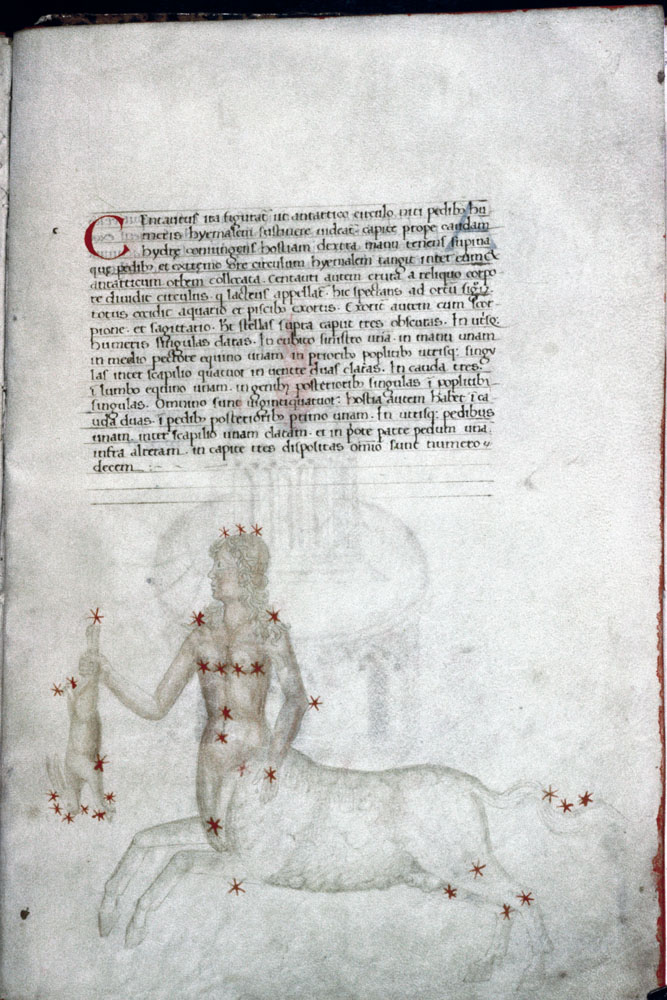 CEntaurus ita figurat᷑ ut antartico circulo niti pedib; hu
meris hyemalem sustinere videat᷑ capite prope caudam
hydre contingens hostiam dextra manu tenens supina
que pedib; et extremo ore circulum hyemalem tangit inter eum &
antarticum orbem collocata. Centauri autem crura a reliquo corpo
re diuidit circulus q lacteus appellat᷑. hic spectans ad ortū
totus exidit aquario et piscib; exortus. Exorit᷑ autem cum scor
pione. et sagittario. ht stellas supra caput tres obscuras. In utrisq;
humeris singulas claras. In cubito sinistro unā. in manu unam
in medio pectore equino unam. in priorib; poplitib; utrisq; singu
las inter scapilio quatuor in uentre duas claras. In cauda tres.
i lumbo equino unam. in genib; posteriorib; singulas i poplitib;
singulas. Omnino sunt uigintiquatuor: hostia autem habet i ca
uda duas. i pedib; posteriorib; primo unam. In utrisq; pedibus
unam. inter scapilio unam claram. et in pore parte pedum una.
infra alteram. in capite tres dispositas omīo sunt numero
decem